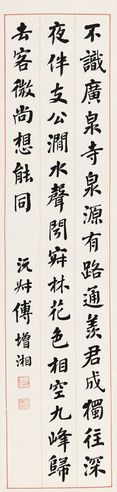 不識廣泉寺泉源有路通羨君成獨往深
夜伴支公澗水聲聞寂林花色相空九峰歸
去客微尚想能同
沅叔傅增湘